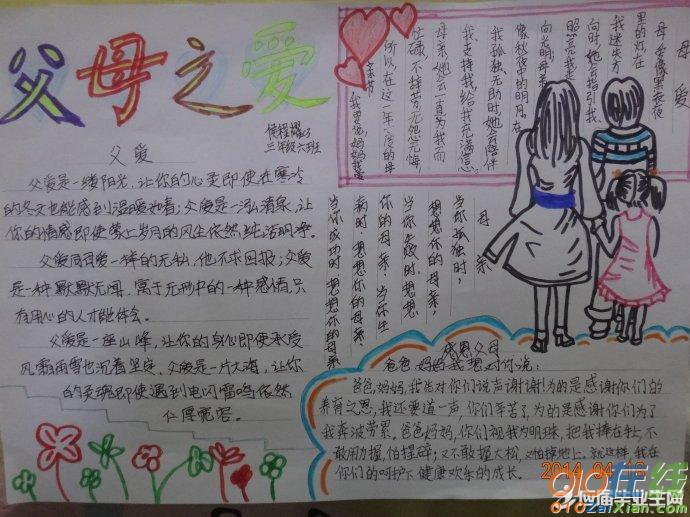 父母之爱
侯程耀
三年级六班
父爱
父爱是一缕阳光,让你的心灵即使在寒冷
的冬天也能感到温暖如春;父爱是一泓清泉,让
你的情感即使蒙上岁月的风尘依然纯洁明净。
父爱同母爱一样的无私,他不求回报;父爱
是一种默默无闻,寓于无形中的一种感情,只
有用心的人才能体会。
父爱是一座山峰,让你的身心即使承受
风霜雨雪也沉着坚定,父爱是一片大海,让你
的灵魂即使遇到电闪雷鸣依然
仁厚宽容。
母爱
母爱像黑夜
里的灯在
我迷失方
向时她会指引我
照亮我走
向光明母亲
像秋夜中的明月在
我孤独无助时,她会陪伴
我支持我给我充满信心
母亲她会一直为我而
忙碌,不辞劳,无怨无悔,
所以在这一年一度的母
亲节
我要说,妈妈我爱
母亲
当你孤独时,
想想你的母亲,
当你失败时,想想
你的母亲,当你生
病时,想想你的母亲,
当你成功时,想想你的母亲
感恩父母
爸爸,妈妈我想对你说:
爸爸,妈妈,我先对你们说声谢谢!为的是感谢你们的
养育之恩,我还要道一声,你们辛苦了,为的是感谢你们为了
我奔波劳累,爸爸,妈妈,你们视我为明珠,把我捧在手上,不
敢用力握,怕捏碎,又不敢握太松,又怕掉地上。就这样,我在
你们的呵护下健康欢乐的成长。
2014 04 13
910在线
@应届毕业生网
910ZaiXian.com